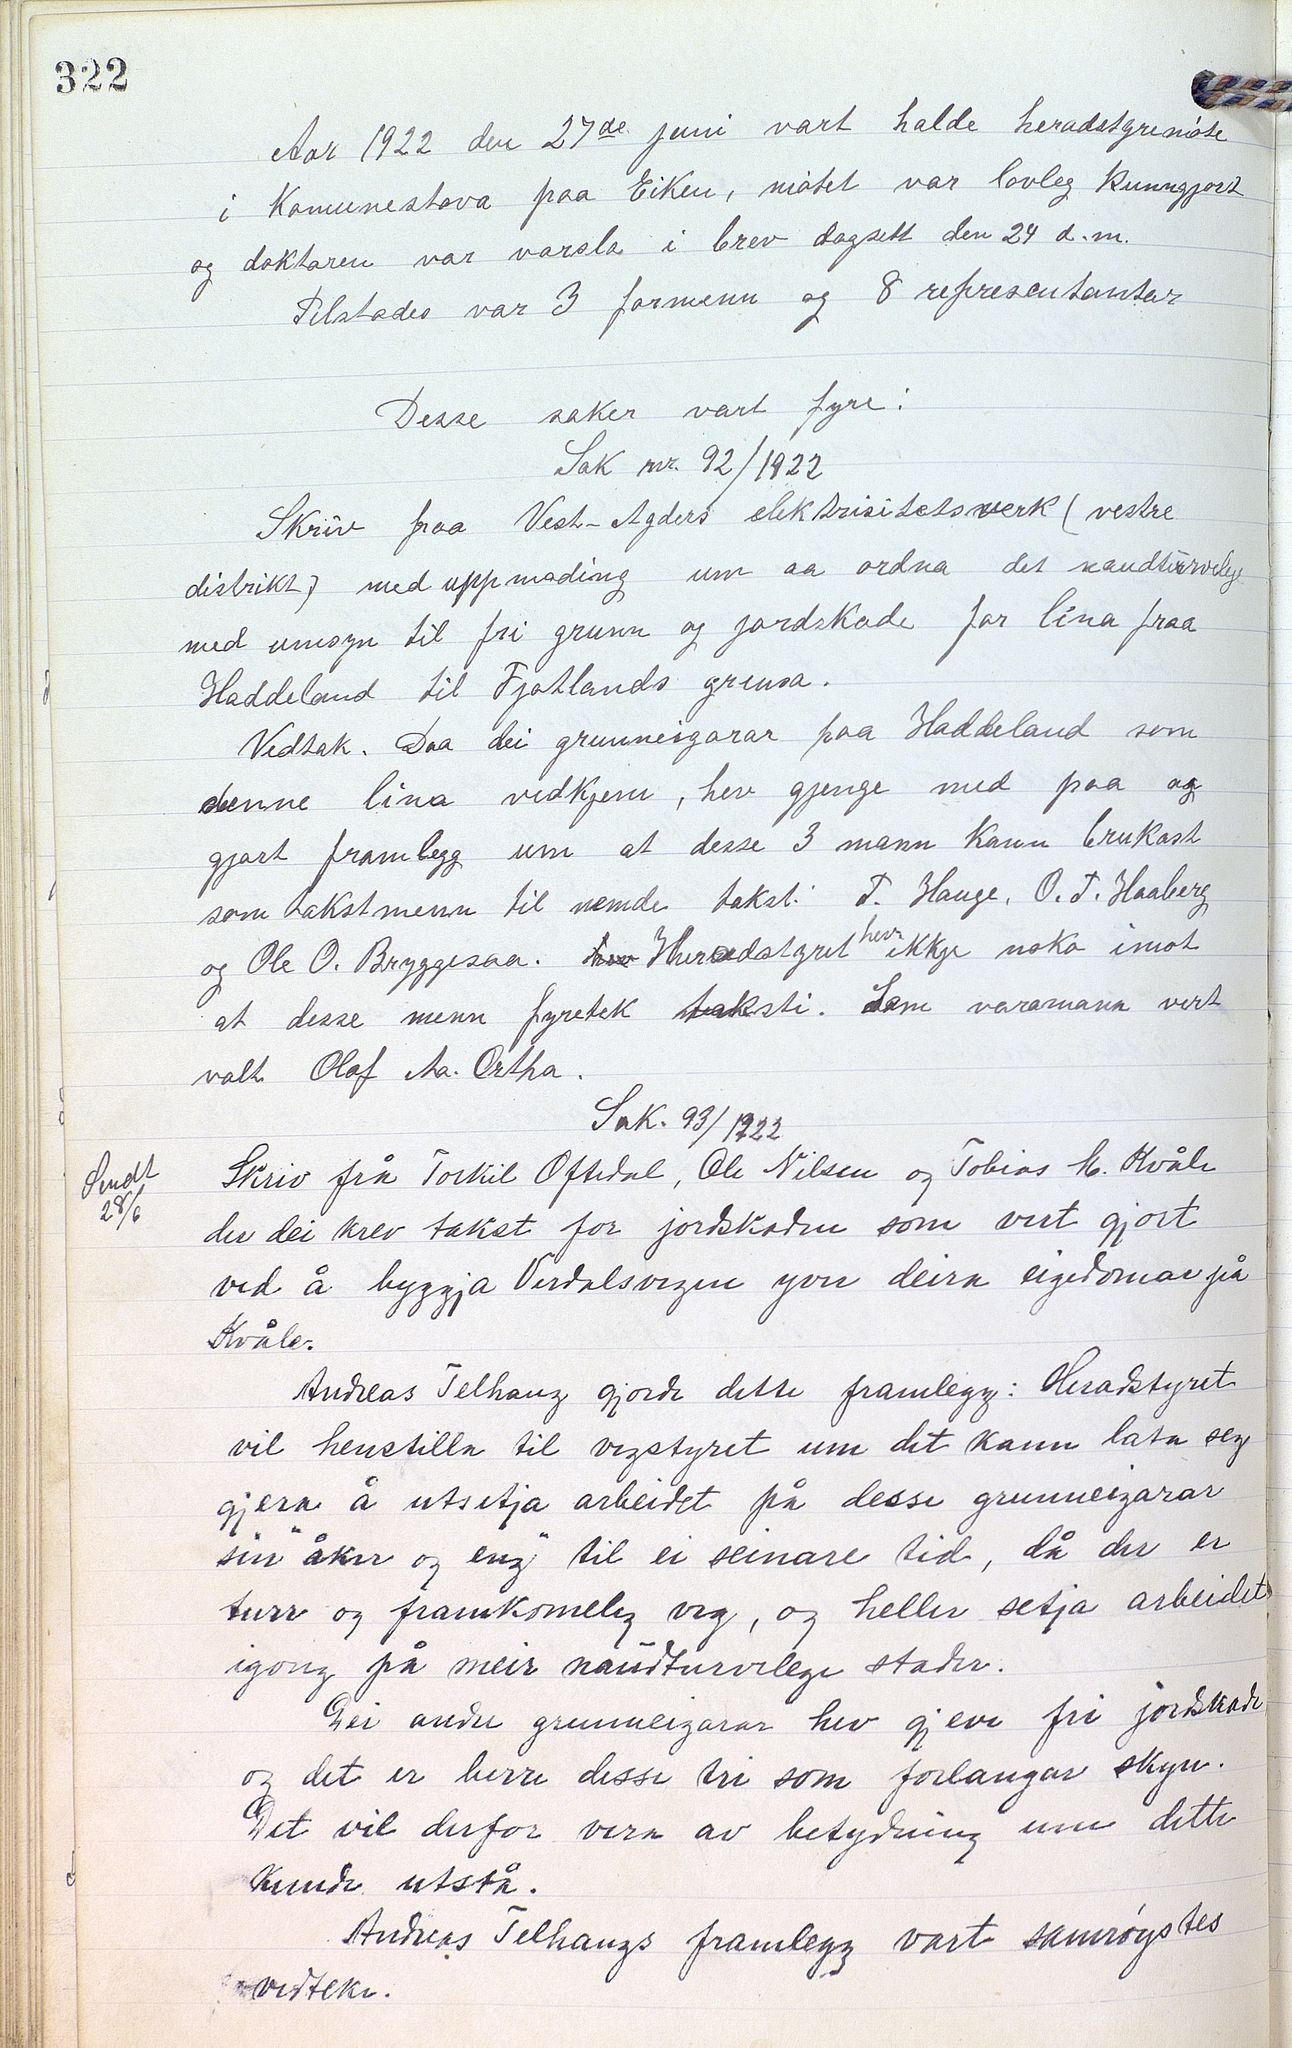 322
Aar 1922 den 27de juni vart halde heradstyremöte
i Komunestova paa Eiken, mötet var lovleg kunngjort
og doktaren var varsla i brev dagsett den 24 d.m.
Tilstades var 3 formenn og 8 representantar
Desse saker vart fyre:
Sak nr. 92/1922
Skriv fraa Vest-Agders elektrisitetsverk (vestre
distrikt) med uppmading um aa ordna det naudturvelege
med umsyn til fri grunn og jordskade for lina fraa
Haddeland til Fjotlands grensa.
Vedtak. Daa dei grunneigarar paa Haddeland som
denne lina vedkjem, hev gjenge med paa og
gjort framlegg um at desse 3 mann kann brukast
som takstmenn til nemde takst: T. Hauge, O.T. Haaberg
og Ole O. Bryggesaa. Heradstyret hev ikkje noko imot
at desse menn fyretek taksti. Som varamann vert
valt Olaf Aa. Ertha.
Sak. 93/1922
Sendt
28/6
Skriv frå Torkil Oftedal, Ole Nilsen og Tobias M. Kvåle
der dei krev takst for jordskaden som vert gjort
ved å byggja Verdalsvegen yver deira eigedomar på
Kvåle.
Andreas Telhaug gjorde dette framlegg: Heradstyret
vil henstilla til vegstyret um det kann lata seg
gjera å utsetja arbeidet på desse grunneigarar
sin "åker og eng" til ei seinare tid, då der er
turr og framkomeleg veg, og heller setja arbeidet
igong på meir naudturvelege stader.
Dei andre grunneigarar hev gjeve fri jordskade
og det er berre desse tri som forlangar skyn.
Det vil derfor vera av betydning um dette
kunde utstå.
Andreas Telhaugs framlegg vart samröystes
vedteke.